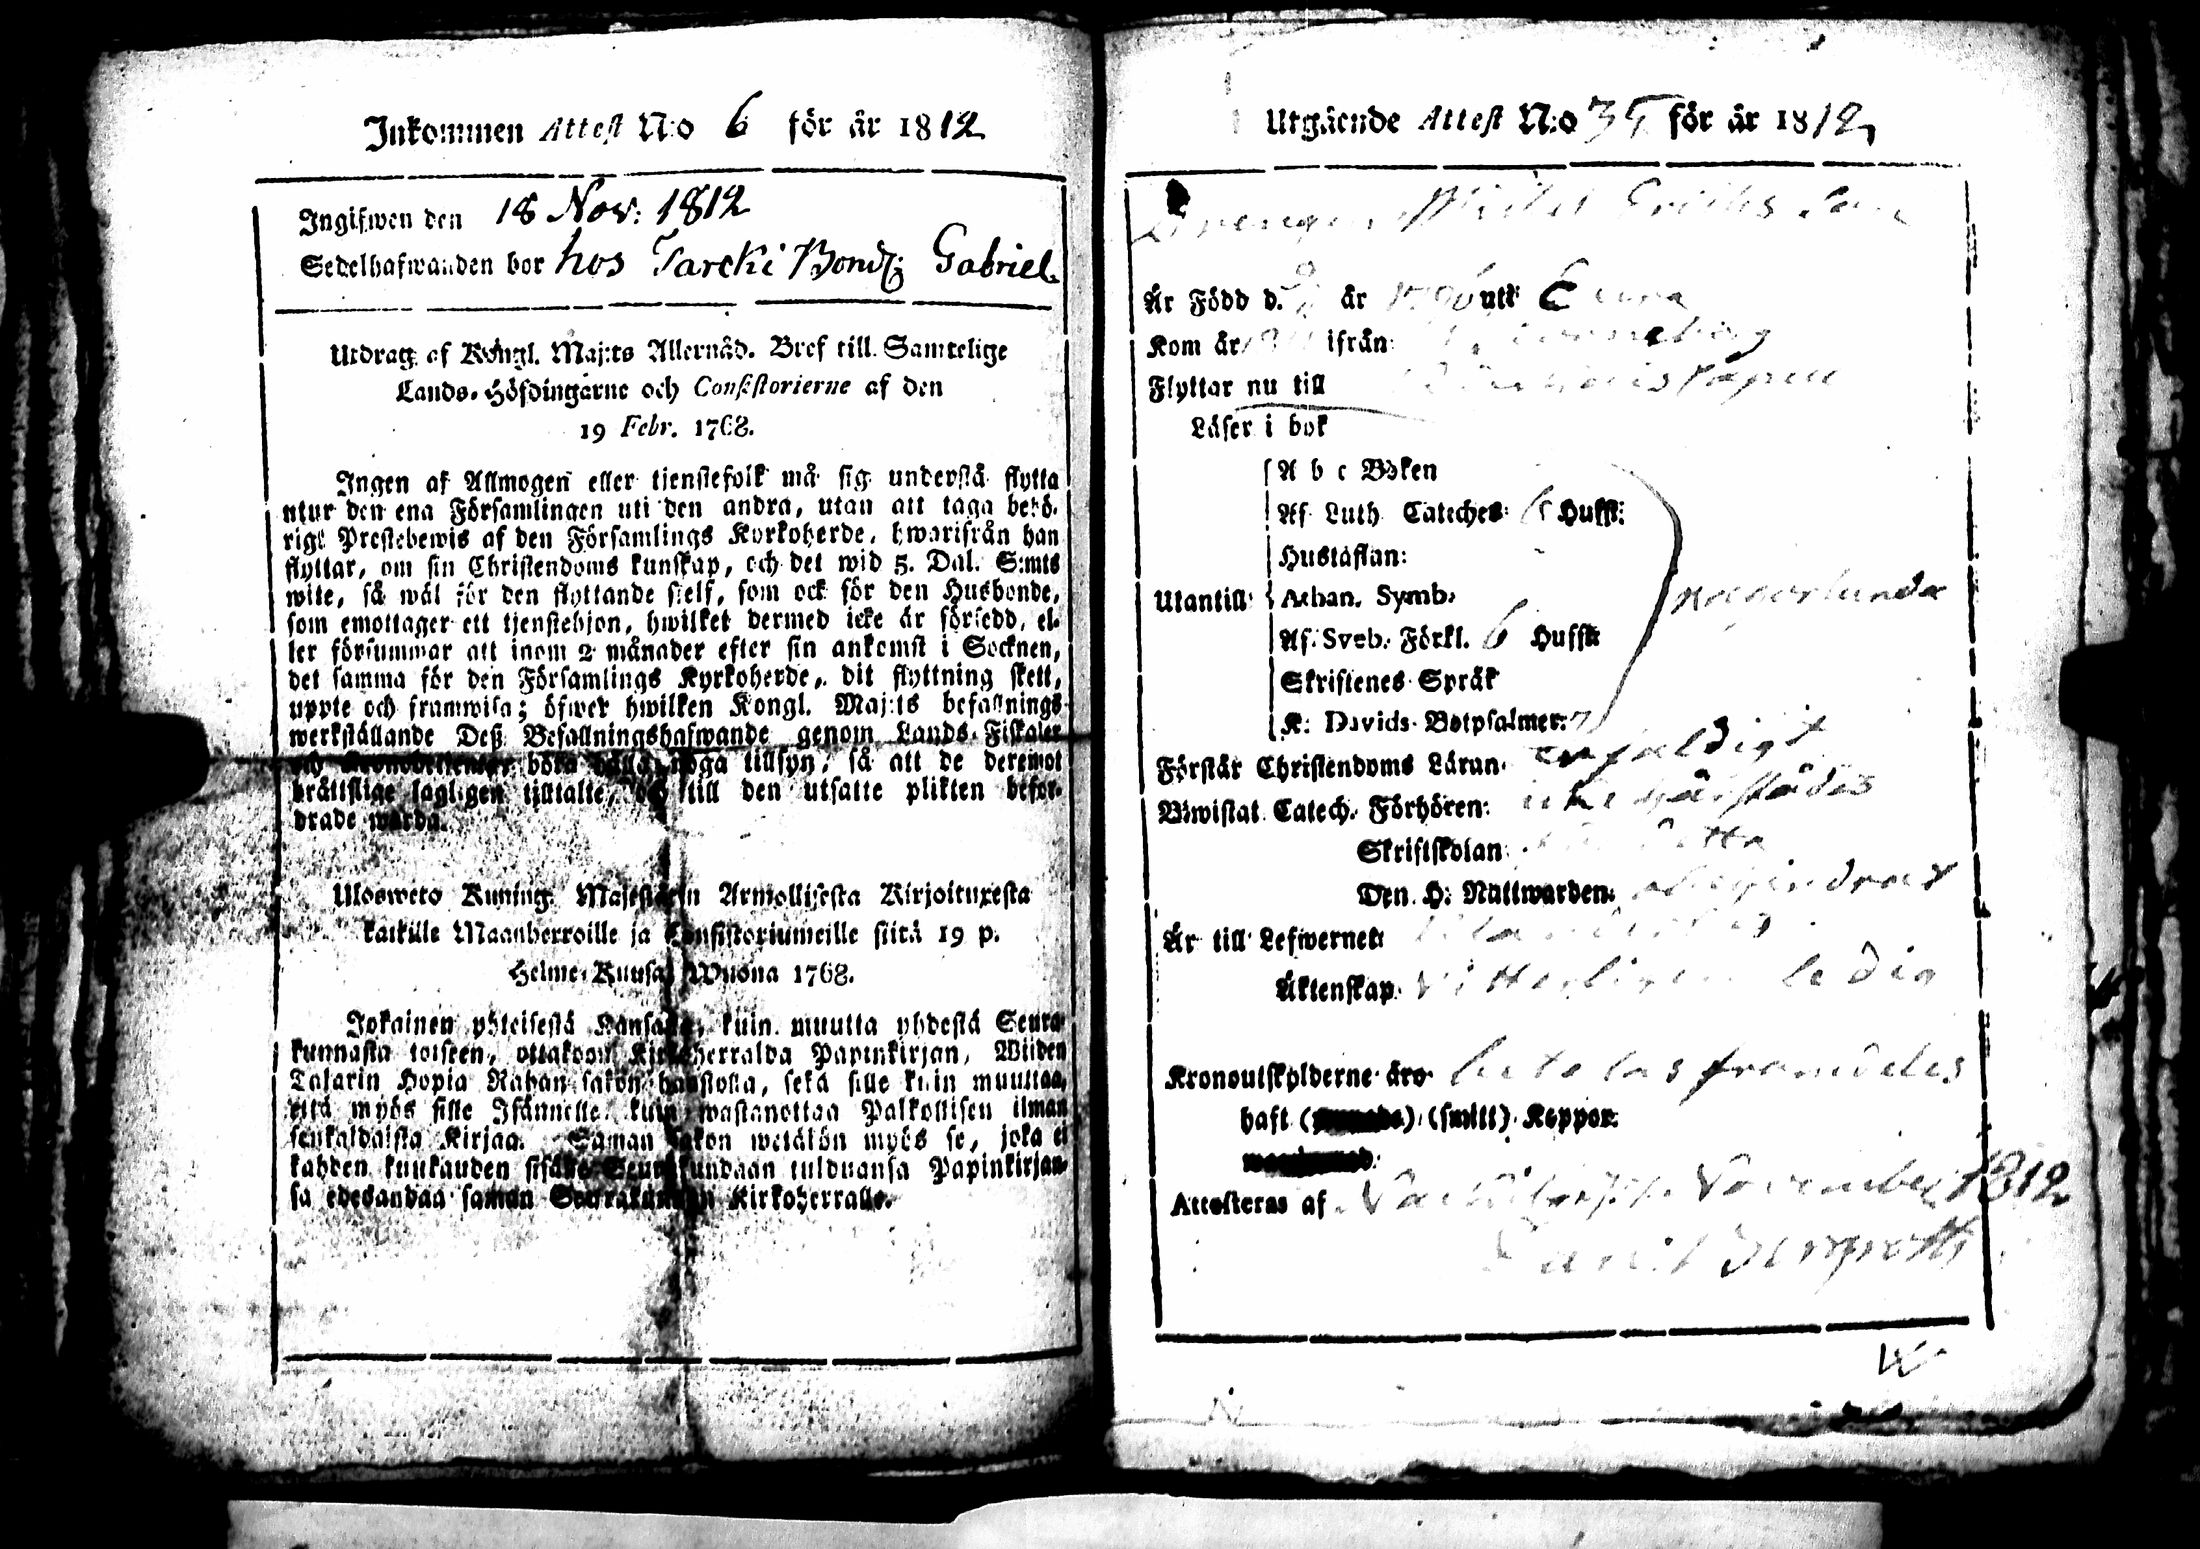 Inkommen Attest N:o 6 för år 1812
Ingifwen den 18 Nov: 1812
Sedelhafwanden bor hos Tarcki Gabriel
Utdrag af Kongl. Maj:ts Allernåd. Bref till Samtelige
Lands-Höfdingarne och Consistorierne af den
19 Febr. 1768.
Ingen af Allmogen eller tjenstefolk må sig understå flytta
utur den ena Församlingen uti den andra, utan att taga behö-
rigt Prestebewis af den Församlings Kyrkoherde, hwarifrån han
flyttar, om sin Christendoms kunskap, och det wid 5. Dal. S:mts
wite, så wäl för den flyttande sjelf, som ock för den Husbonde,
som emottager ett tjenstehjon, hwilket dermed icke är försedd, el-
ler försummar att inom 2 månader efter sin ankomst i Socknen,
det samma för den Församlings Kyrkoherde, dit flyttning skett,
uppte och framwisa; öfwer hwilken Kongl. Maj:ts befallnings
werkställande Deß Befallningshafwande genom Lands-Fiskaler
och böra hålla noga tillsyn, så att de deremot
brättslige lagligen tilltalte, och till den utsatte plikten befor-
drade warda.
Ulosweto Kuning. Majestätin Armollisesta Kirjoituxesta
kaikille Maanherroille ja Consistoriumeille siitä 19 p.
Helme-Kuusa Wuona 1768.
Jokainen yhteisestä Kansasta, kuin muutta yhdestä Seura-
kunnasta toiseen, ottakoon Kirkoherralda Papinkirjan, Wiiden
Talarin Hopia Rahan sakon haastolla, sekä sille kuin muuttaa,
että myös sille Isännelle kuin wastanottaa Palkollisen ilman
senkaldaista Kirjaa. Saman sakon wetäkön myös se, joka ei
kahden kuukauden sisälle Seurakundaan tulduansa Papinkirjan-
sa edesandaa saman Seurakunnan Kirkoherralle.
Utgående Attest N:o 35 för år 1812
Drengen Eriks Son
Är Född d. år uti
Kom år ifrån
Flyttar nu till
Läser i bok
A b c Boken
Af Luth. Cateches 6 Hufst:
Hustaflan:
Utantill: Athan. Symb. någorlunda
Af Sveb. Förkl. 6 Hufst:
Skriftenes Språk
K. Davids Botpsalmer: 7
Förstår Christendoms Läran enfaldigt
Bewistat Catech. Förhören: icke härstädes
Skriftskolan: detta
Den H. Nattwarden: ohindrat
Är till Lefwernet
Äktenskap. Vitterligen ledig
Kronoutskylderne äro betalas framdeles
haft () (smitt) Koppor.
Attesteras af November 1812